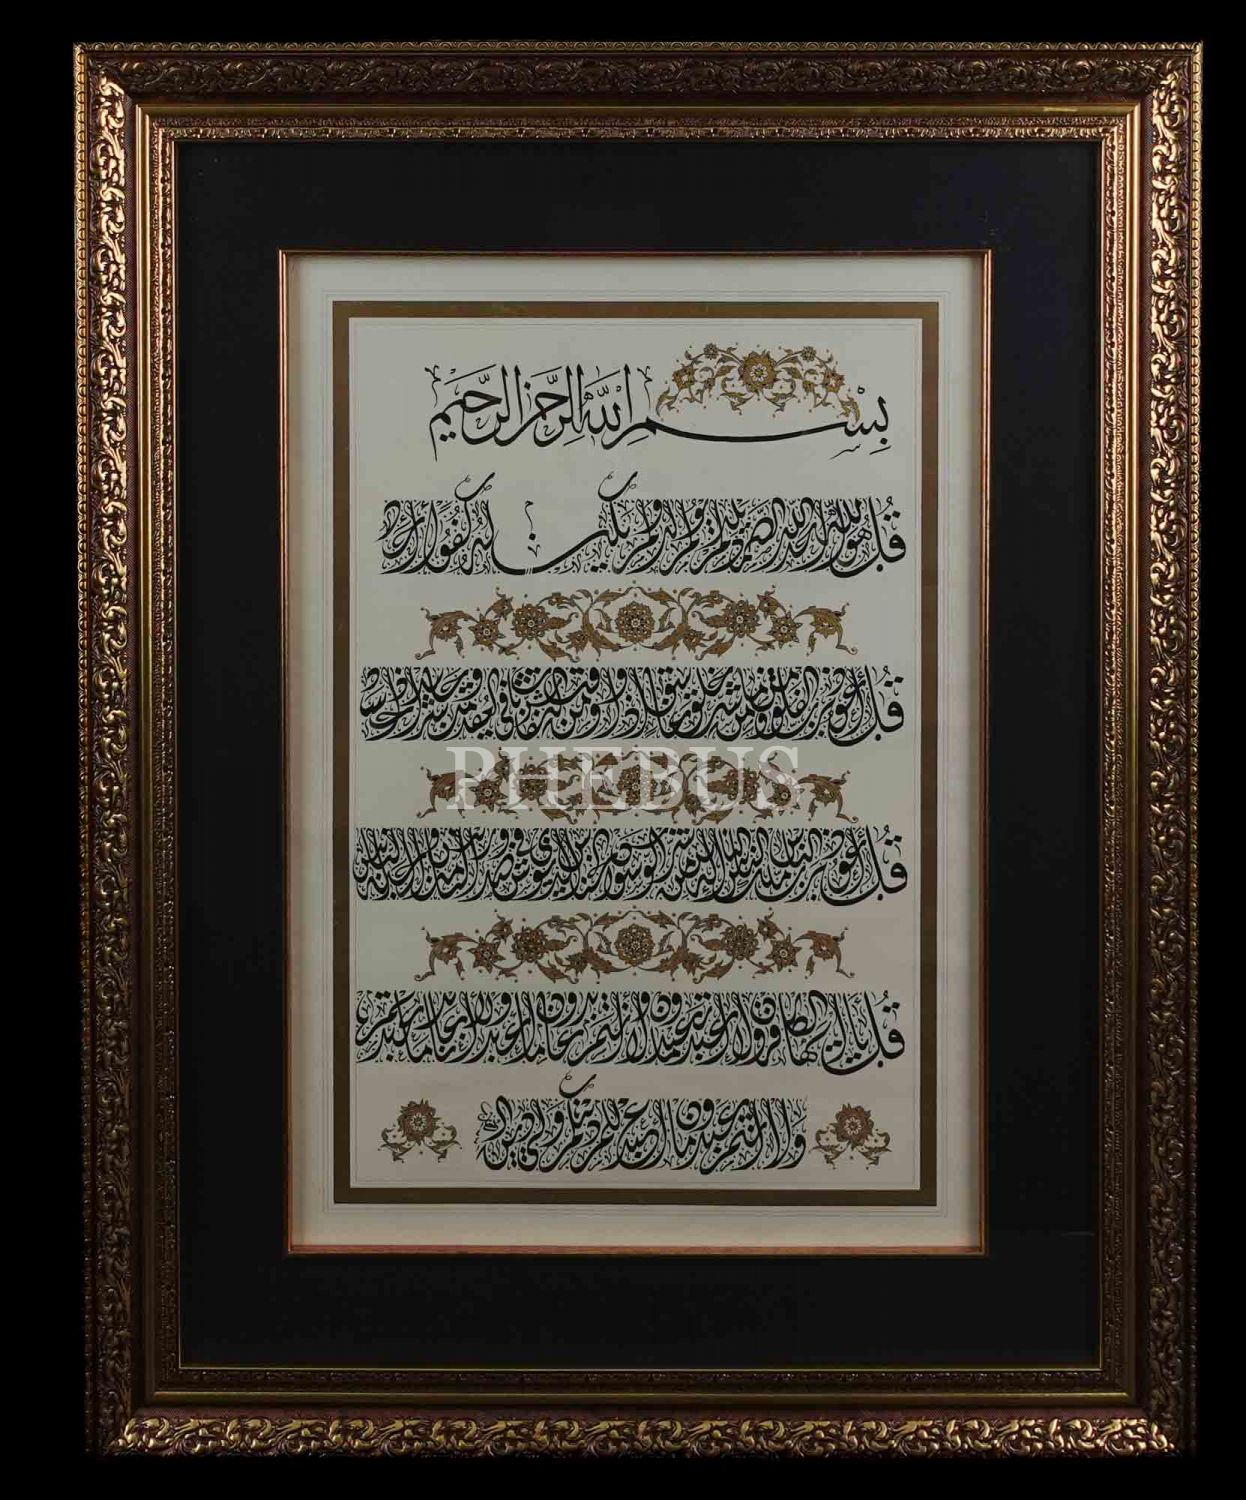 بِسْمِ اللّٰهِ الرَّحْمٰنِ الرَّحِيمِ
قُلْ هُوَ اللّٰهُ أَحَد اللّٰهُ الصَّمَد لَمْ يَلِدْ وَلَمْ يُولَدْ وَلَمْ يَكُن لَهُ كُفُوًا أَحَد
قُلْ أَعُوذُ بِرَبِّ الْفَلَقِ مِن شَرِّ مَا خَلَقَ وَمِن شَرِّ غَاسِقٍ إِذَا وَقَبَ وَمِن شَرِّ النَّفَّاثَاتِ فِي الْعُقَدِ وَمِن شَرِّ حَاسِدٍ إِذَا حَسَدَ
PHEBUS
قُلْ أَعُوذُ بِرَبِّ النَّاسِ مَلِكِ النَّاسِ إِلٰهِ النَّاسِ مِن شَرِّ الْوَسْوَاسِ الْخَنَّاسِ الَّذِي يُوَسْوِسُ فِي صُدُورِ النَّاسِ مِنَ الْجِنَّةِ وَالنَّاسِ
قُلْ يَا أَيُّهَا الْكَافِرُونَ لَا أَعْبُدُ مَا تَعْبُدُونَ وَلَا أَنْتُمْ عَابِدُونَ مَا أَعْبُدُ وَلَا أَنَا عَابِدٌ مَا عَبَدْتُمْ
وَلَا أَنْتُمْ عَابِدُونَ مَا أَعْبُدُ لَكُمْ دِينُكُمْ وَلِيَ دِينِ